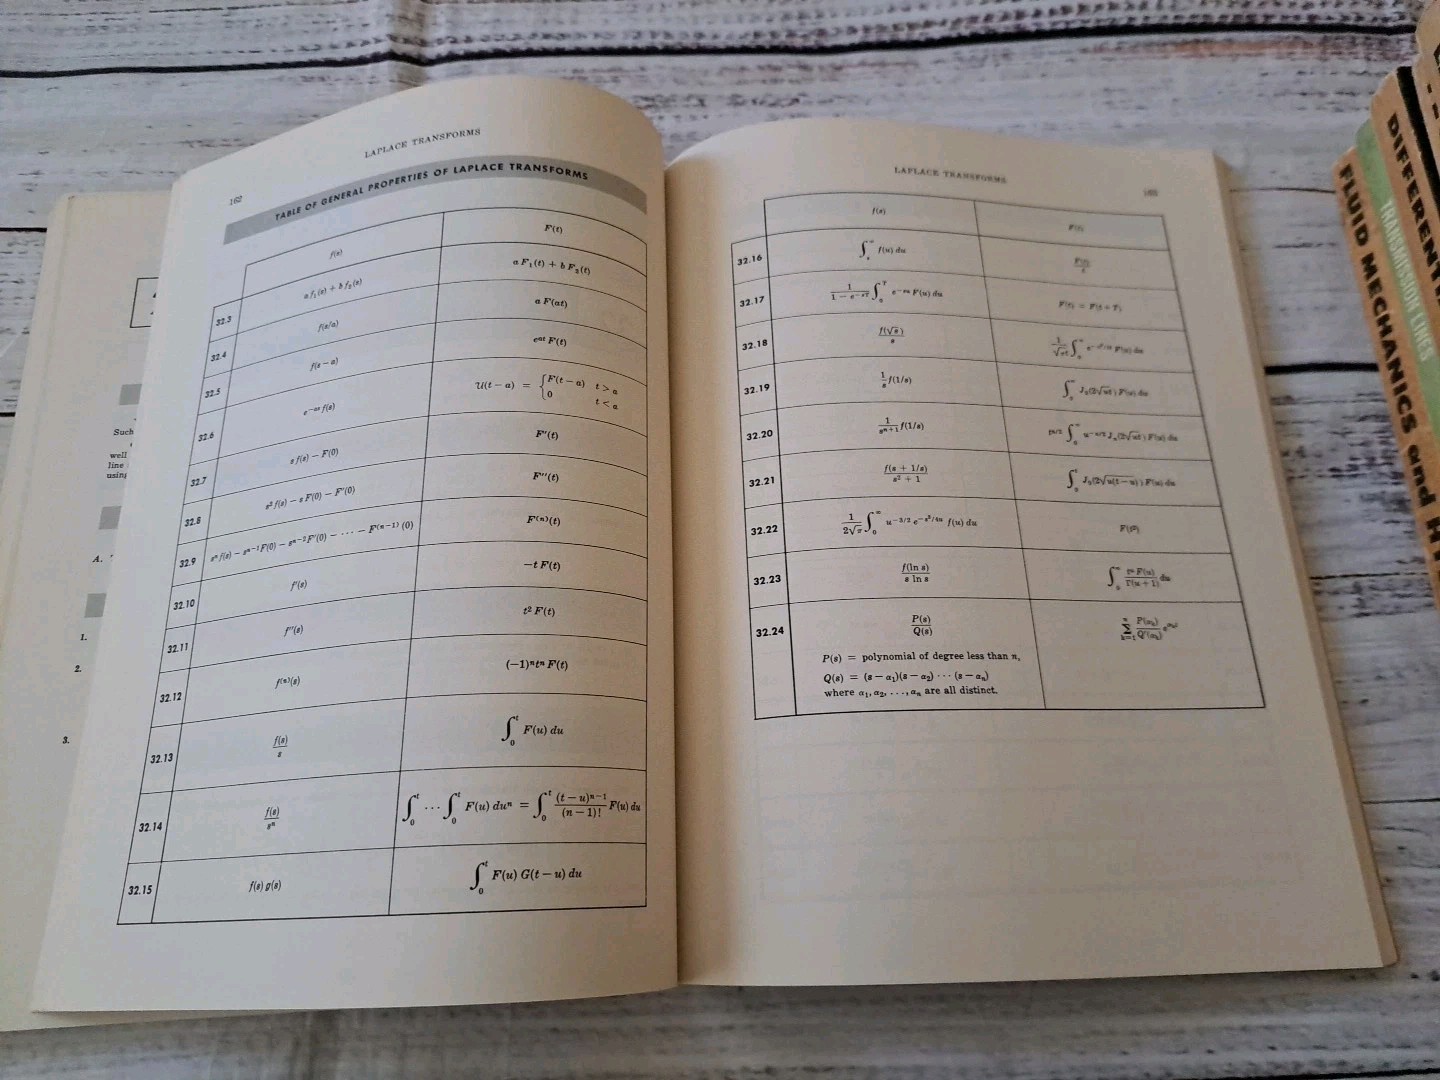 LAPLACE TRANSFORMS
162
TABLE OF GENERAL PROPERTIES OF LAPLACE TRANSFORMS
f(s) F(t)
32.3 a f₁(s) + b f₂(s) a F₁(t) + b F₂(t)
32.4 f(s/a) a F(at)
32.5 f(s − a) e^{at} F(t)
32.6 e^{−as} f(s) 𝒰(t − a) = { F(t − a) t > a
0 t < a
32.7 s f(s) − F(0) F′(t)
32.8 s² f(s) − s F(0) − F′(0) F″(t)
32.9 sⁿ f(s) − s^{n−1} F(0) − s^{n−2} F′(0) − ··· − F^{(n−1)}(0) F^{(n)}(t)
32.10 f′(s) −t F(t)
32.11 f″(s) t² F(t)
32.12 f^{(n)}(s) (−1)ⁿtⁿ F(t)
32.13 f(s)/s ∫₀ᵗ F(u) du
32.14 f(s)/sⁿ ∫₀ᵗ ··· ∫₀ᵗ F(u) duⁿ = ∫₀ᵗ (t − u)^{n−1}/(n − 1)! F(u) du
32.15 f(s) g(s) ∫₀ᵗ F(u) G(t − u) du
LAPLACE TRANSFORMS
163
f(s) F(t)
32.16 ∫ₛ^∞ f(u) du F(t)/t
32.17 1/(1 − e^{−sT}) ∫₀ᵀ e^{−su} F(u) du F(t) = F(t + T)
32.18 f(√s)/s 1/√πt ∫₀^∞ e^{−u²/4t} F(u) du
32.19 1/s f(1/s) ∫₀^∞ J₀(2√ut) F(u) du
32.20 1/s^{n+1} f(1/s) t^{n/2} ∫₀^∞ u^{−n/2} Jₙ(2√ut) F(u) du
32.21 f(s + 1/s)/s² + 1 ∫₀ᵗ J₀(2√u(t − u)) F(u) du
32.22 1/2√π ∫₀^∞ u^{−3/2} e^{−s²/4u} f(u) du F(t²)
32.23 f(ln s)/s ln s ∫₀^∞ tᵘ F(u)/Γ(u + 1) du
32.24 P(s)/Q(s) Σ_{k=1}ⁿ P(αₖ)/Q′(αₖ) e^{αₖt}
P(s) = polynomial of degree less than n,
Q(s) = (s − α₁)(s − α₂) ··· (s − αₙ)
where α₁, α₂, ..., αₙ are all distinct.
Such
well
line
using
A.
1.
2.
3.
TRANSMISSION LINES
FLUID MECHANICS and